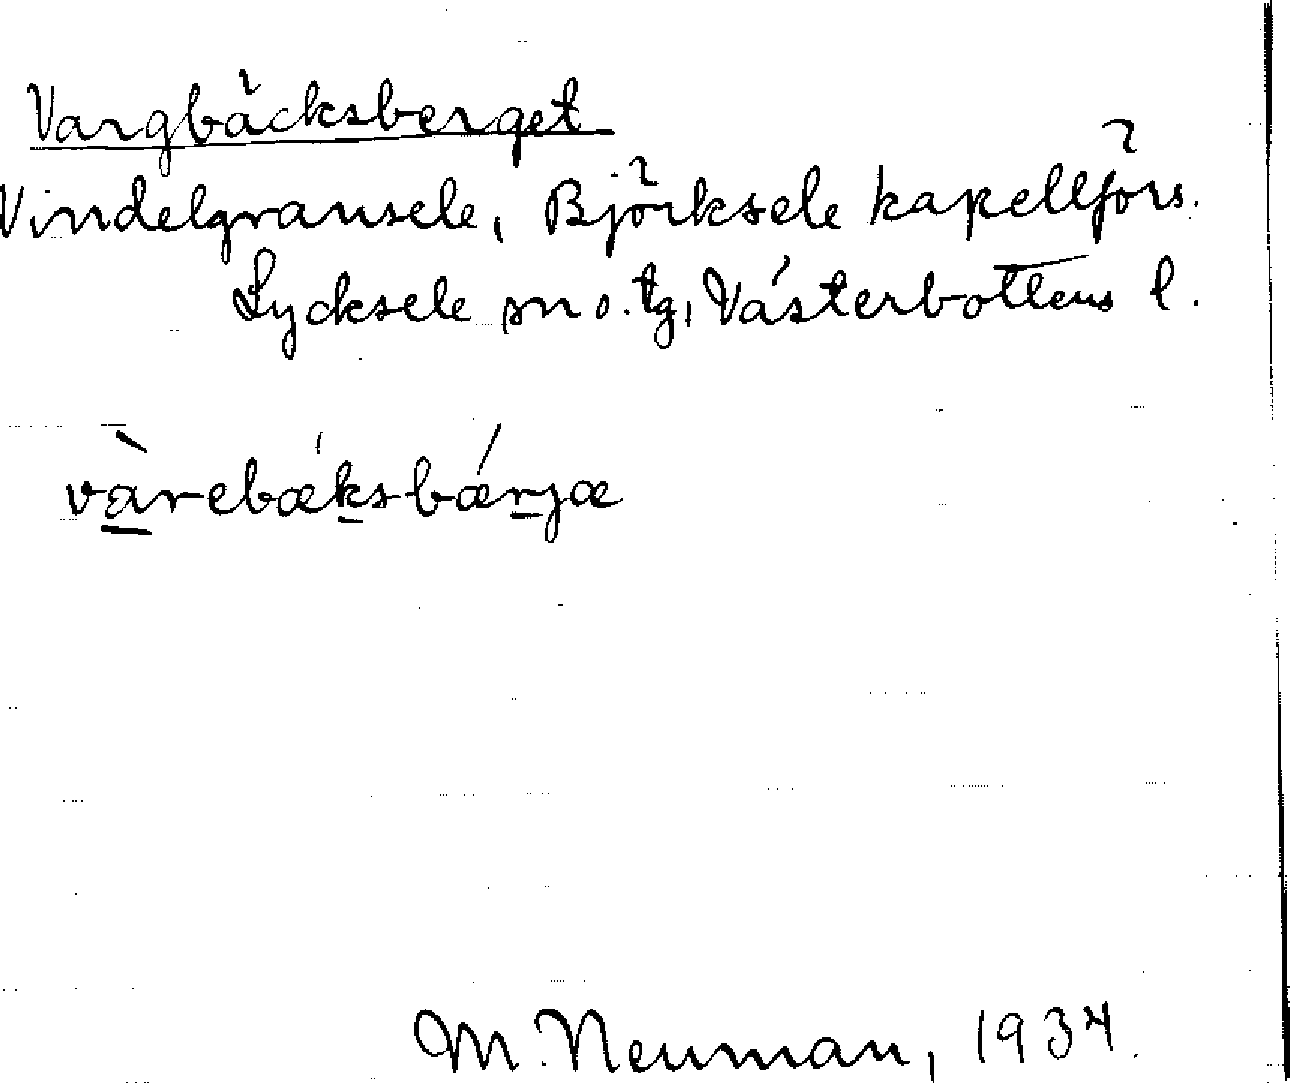 Vargbäcksberget
Vindelgransele, Björksele kapellförs.
Lycksele sn o. tg, Västerbottens l.
vàrebæ̀ksbǽrjæ
M. Neuman, 1934.